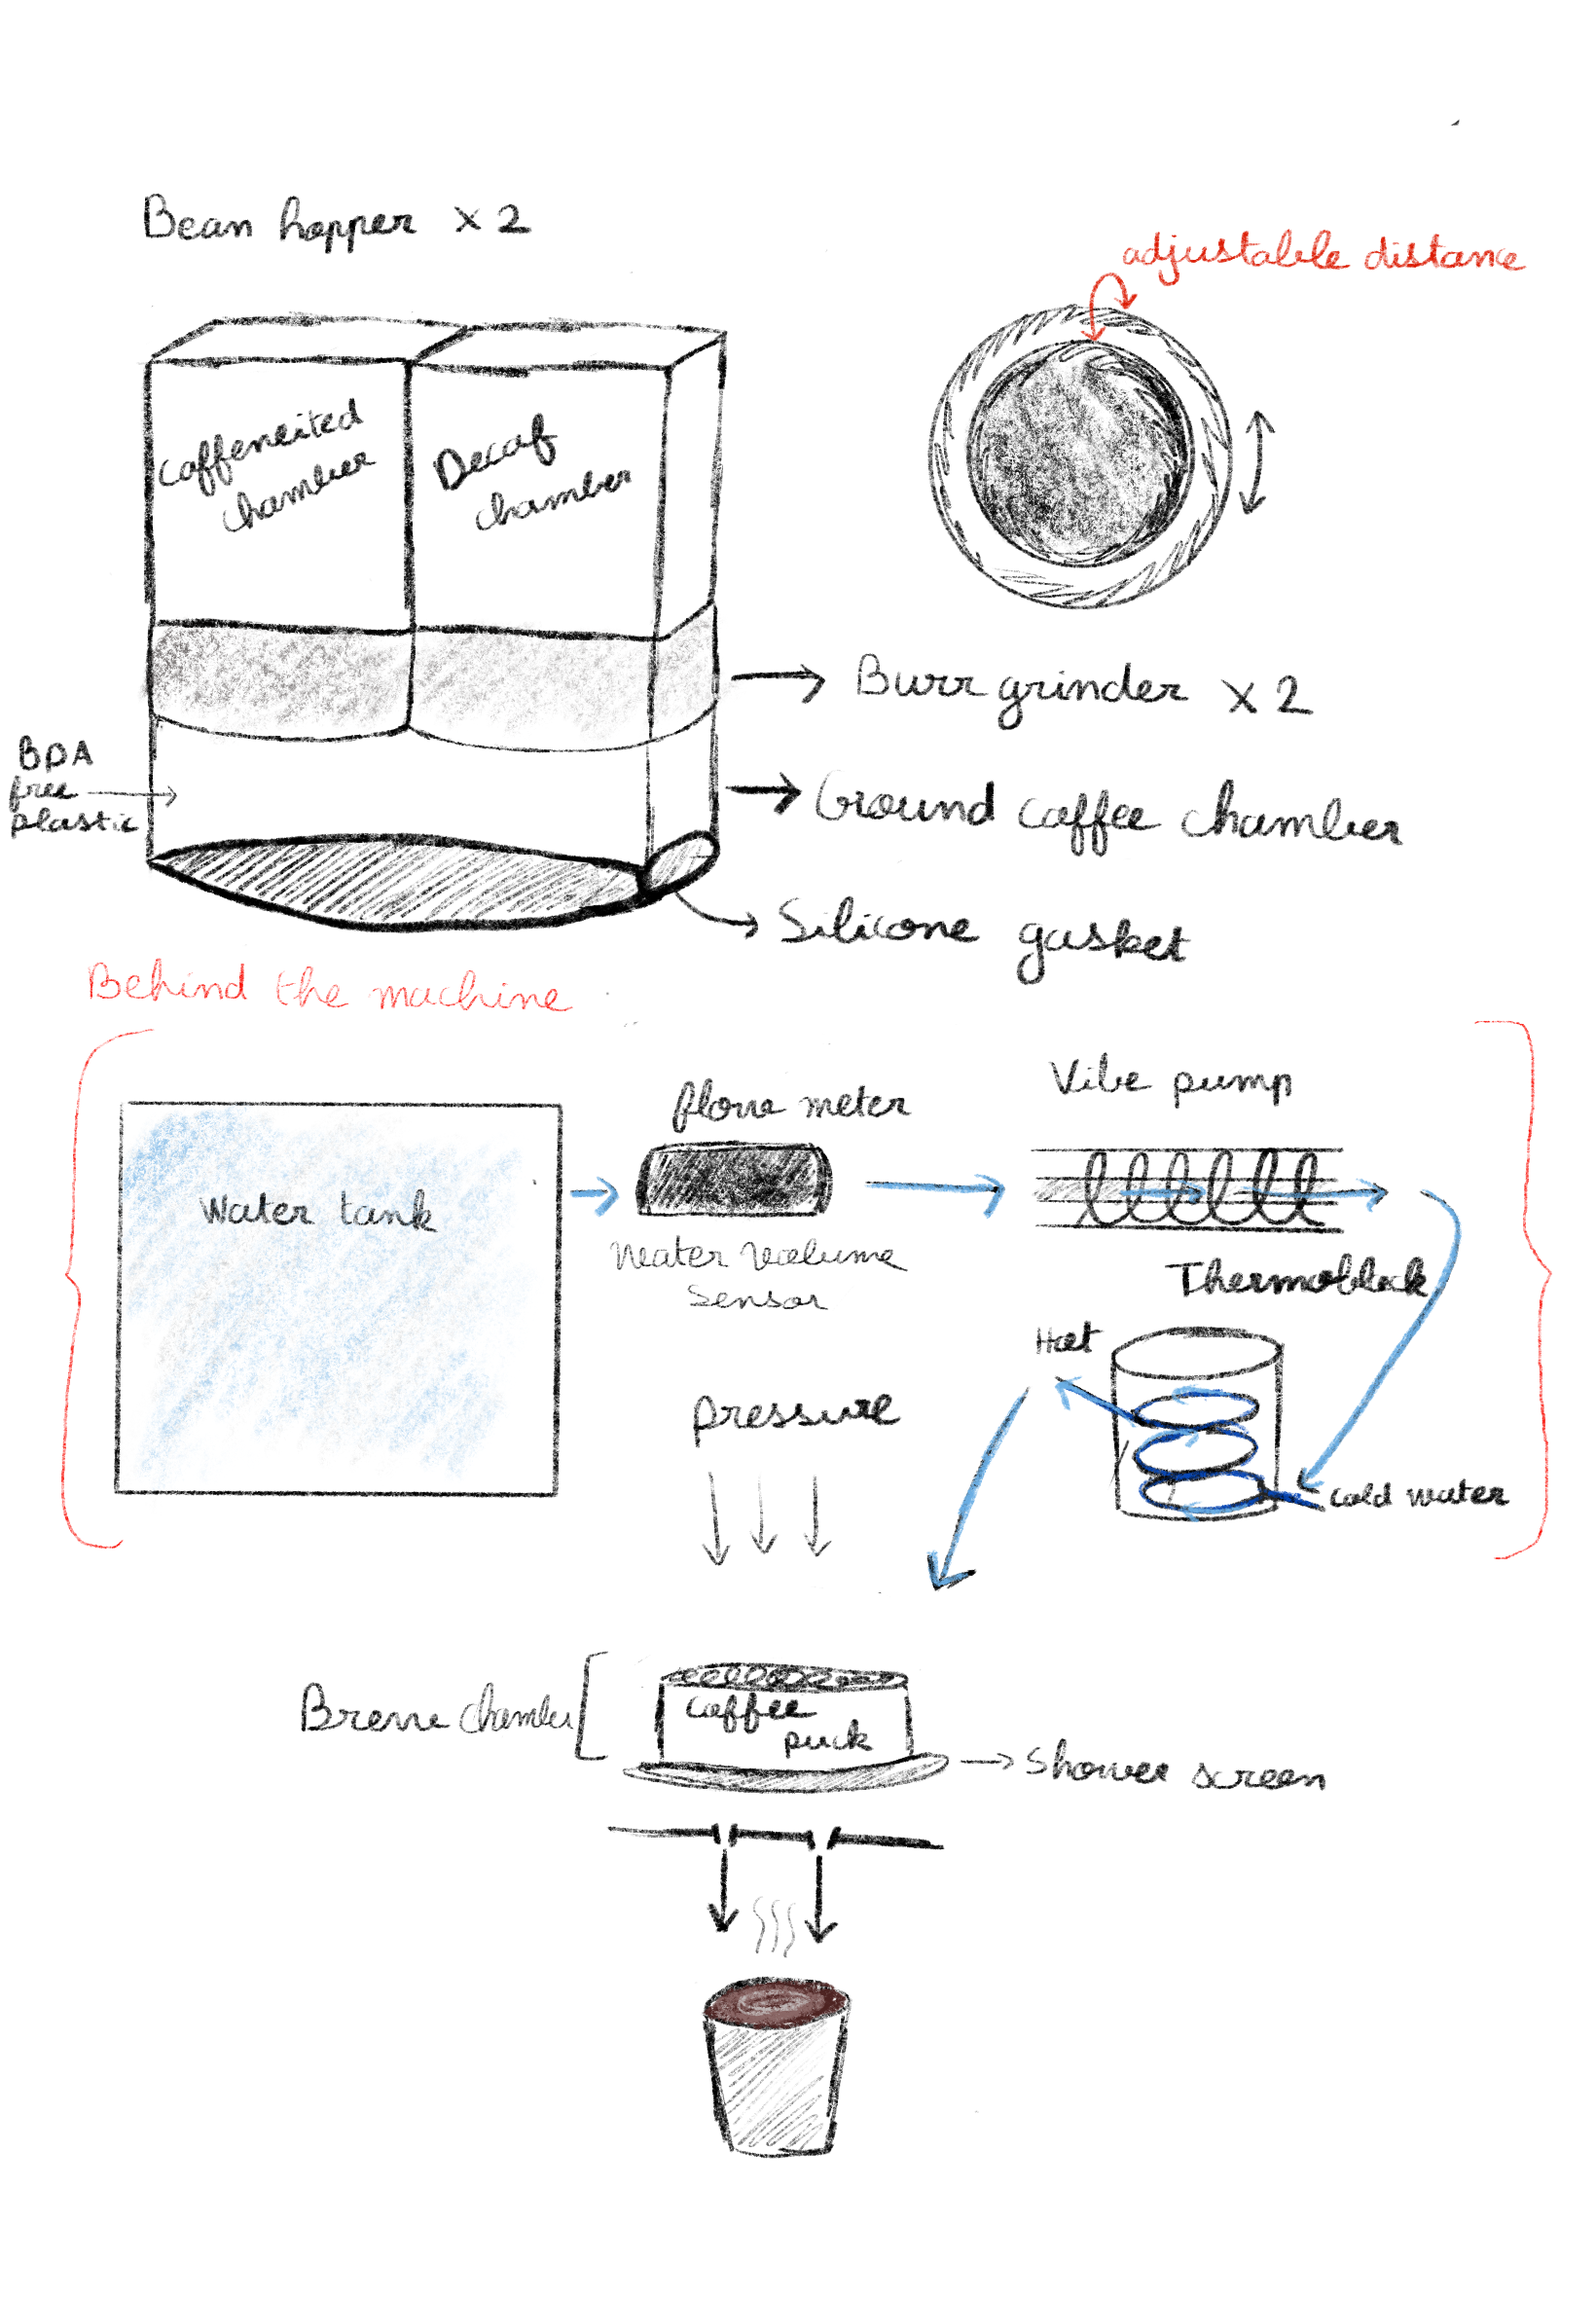 Bean hopper x 2
adjustable distance
Caffeneited
chamber
Decaf
chamber
Burr grinder x 2
BPA
free
plastic
Ground caffee chamber
Silicone gasket
Behind the machine
flow meter
Vibe pump
Water tank
Water Volume
Sensor
Thermoblock
Hot
pressure
cold water
Brew chamber
caffee
puck
Shower screen